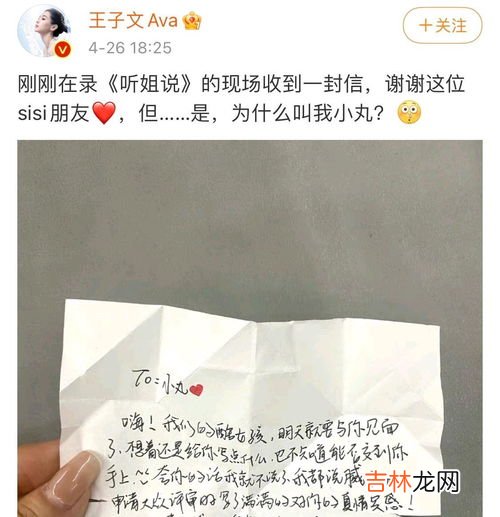 王子文Ava
4-26 18:25
+关注
刚刚在录《听姐说》的现场收到一封信，谢谢这位
sisi朋友❤️，但......是，为什么叫我小丸？
To:小丸❤
嗨！我们的酷女孩，明天就要与你见面
了，想着还是给你写点什么，也不知道能否交到你
手上
我就不说了，我都说腻
申请大众评审时写了满满的对你的真情实感！
吉林龙网